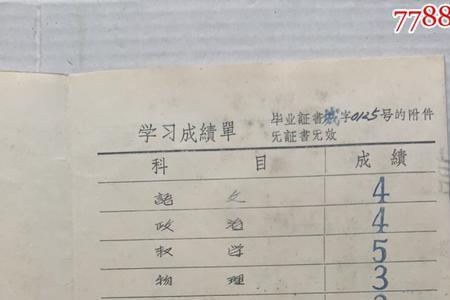 7788
毕业証書城字0125号的附件
学习成績單
旡証書旡效
科 目 成 績
語 文 4
政 治 4
叔 学 5
物 理 3